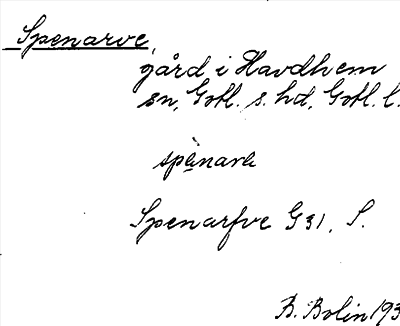 Spenarve,
gård i Havdhem
sn, Gotl. s. hd, Gotl. l.
spenarve
Spenarfve G31, S.
B. Bolin 193